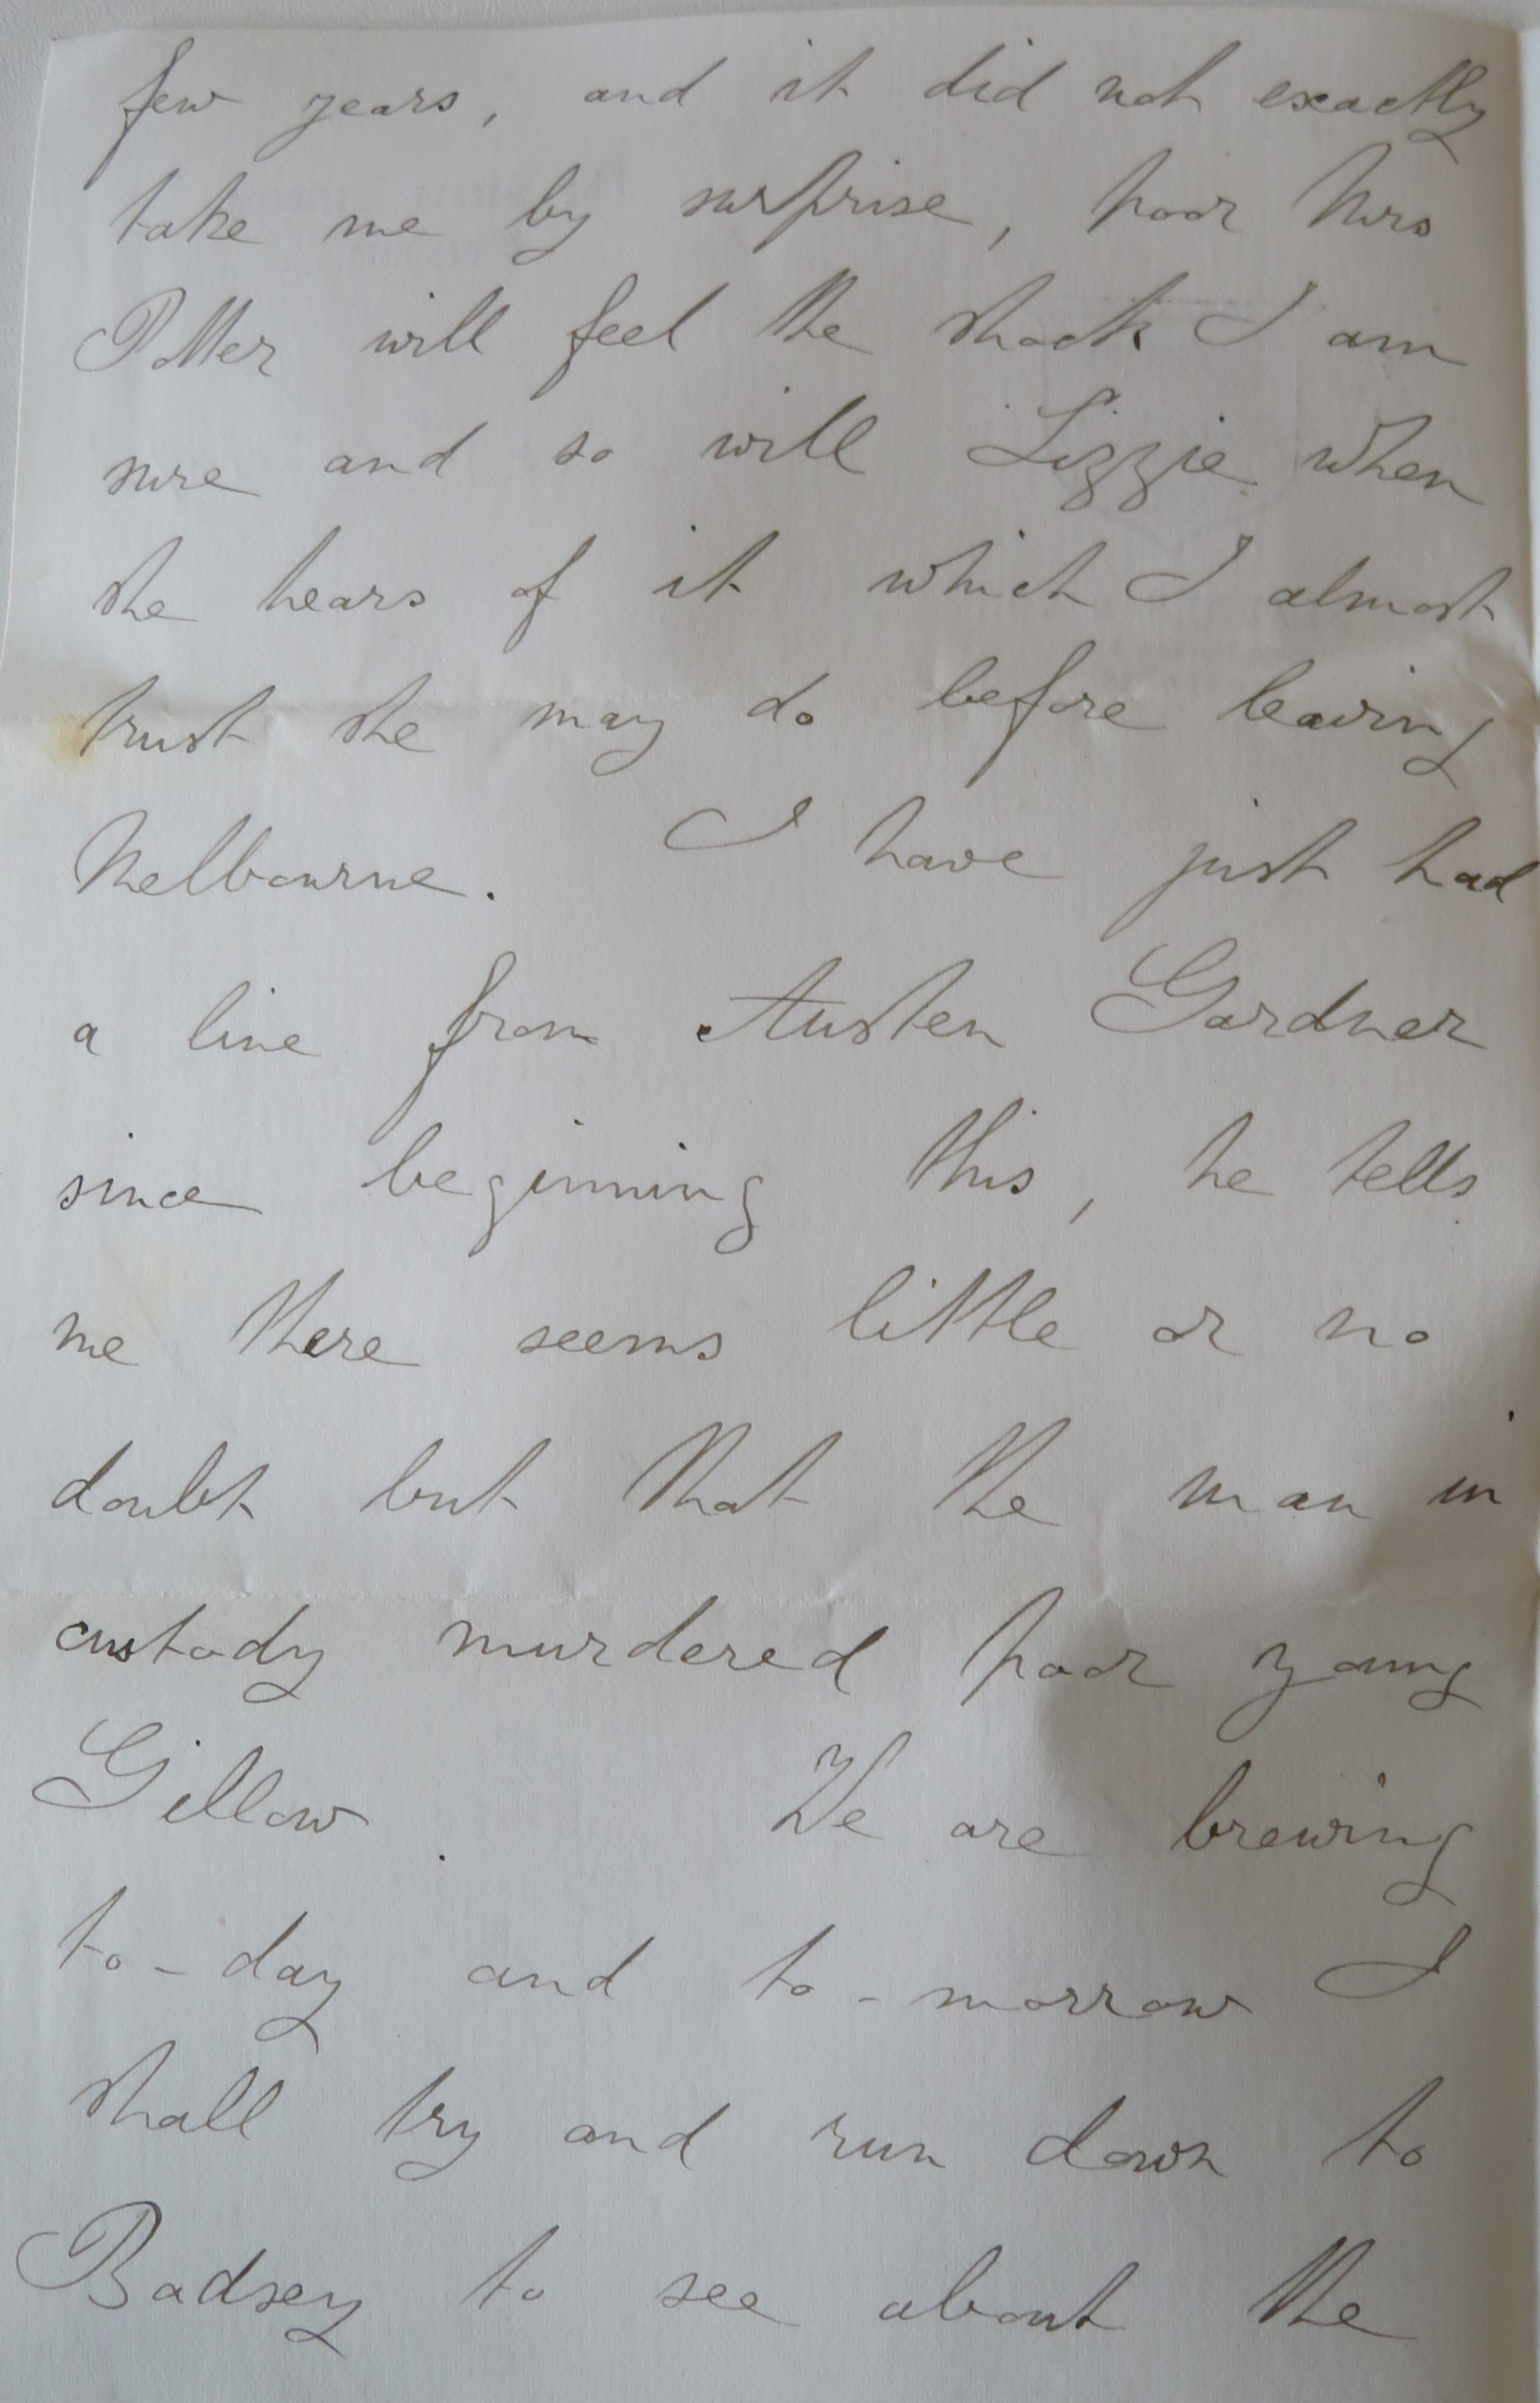 few years, and it did not exactly
take me by surprise, poor Mrs
Potter will feel the shock I am
sure and so will Lizzie when
she hears of it which I almost
trust she may do before leaving
Melbourne. I have just had
a line from Austen Gardner
since beginning this, he tells
me there seems little or no
doubt but that the man in
custody murdered poor young
Gillow. We are brewing
to-day and to-morrow I
shall try and run down to
Badsey to see about the